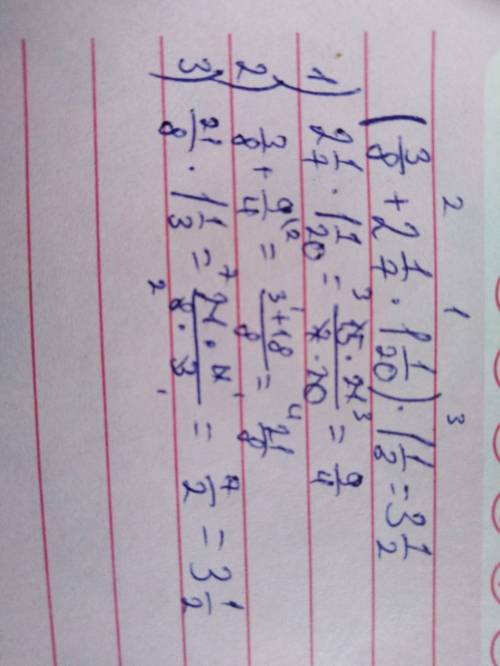 2 1 3
(3/8 + 2 1/7 · 1 1/20) · 1 1/2 = 3 1/2
1) 2 1/7 · 1 1/20 = 15 · 21 / 7 · 20 = 9/4
2) 3/8 + 9/4 = 3 + 18 / 8 = 21/8
3) 21/8 · 1 1/3 = 21 · 4 / 8 · 3 = 7/2 = 3 1/2